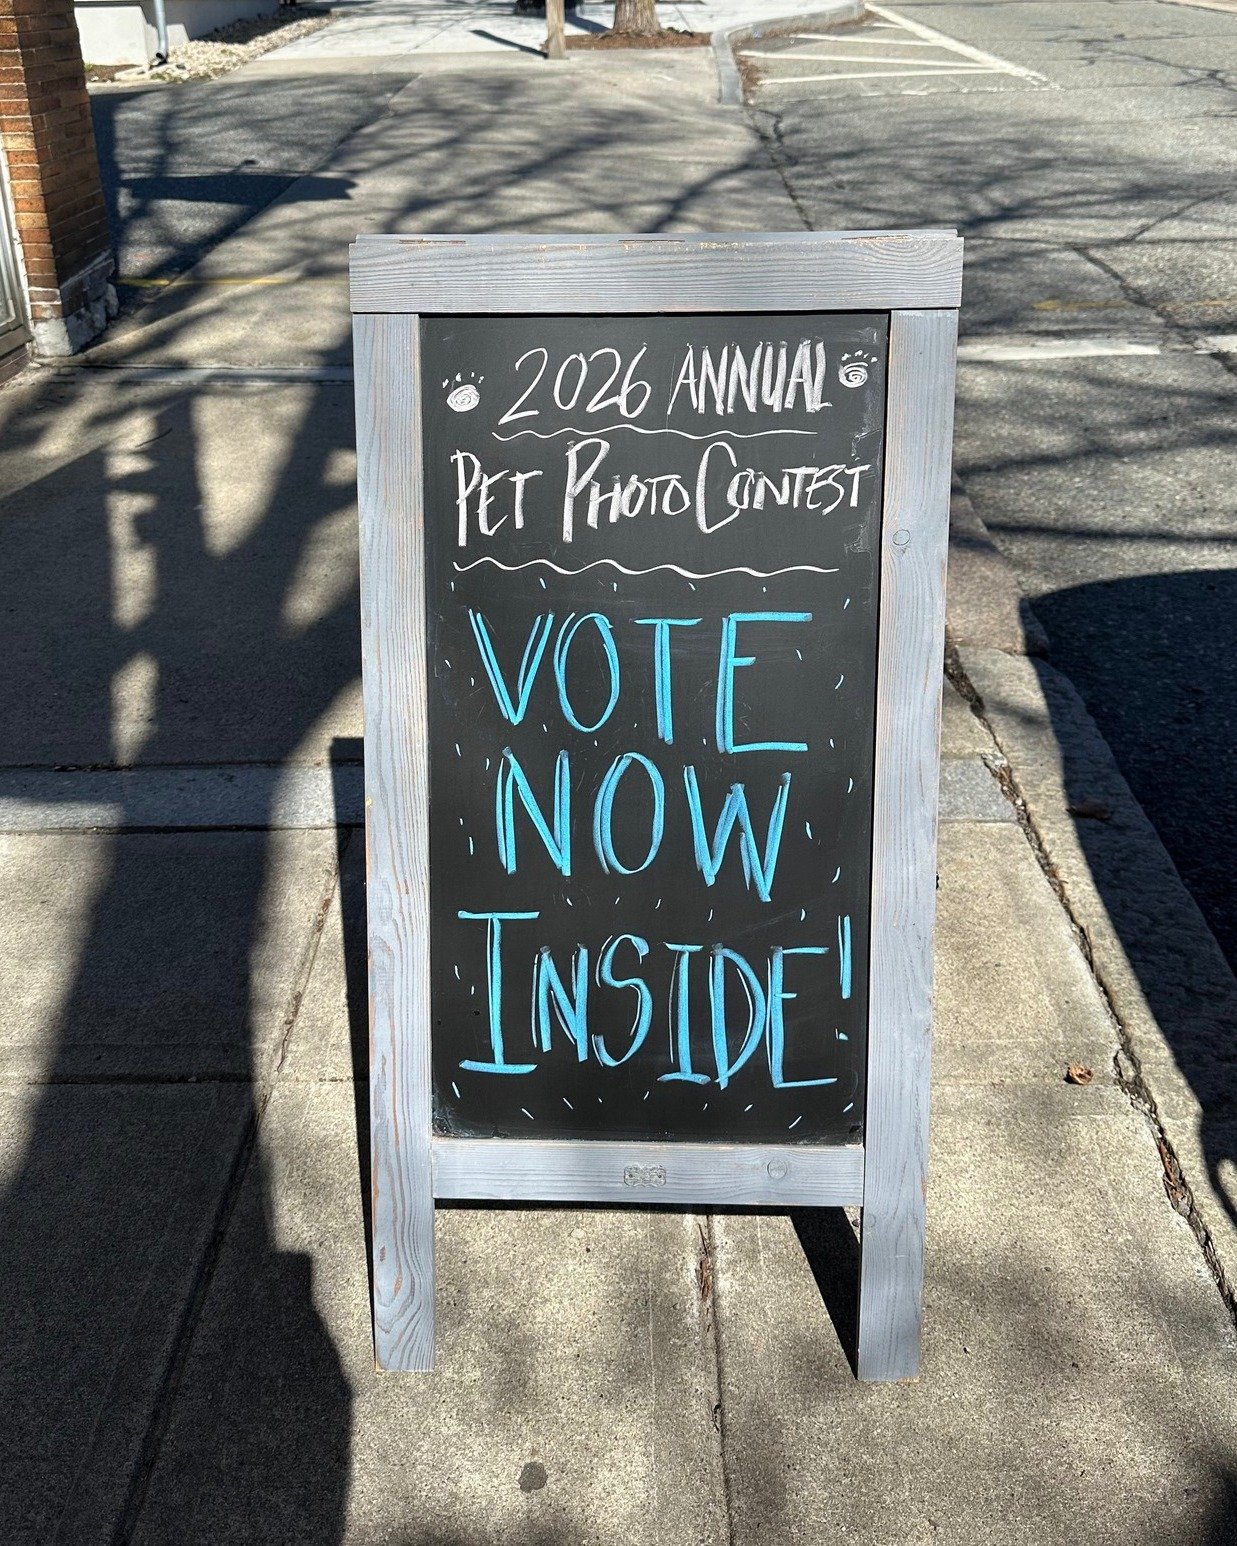 2026 ANNUAL
PET PHOTO CONTEST
VOTE
NOW
INSIDE!